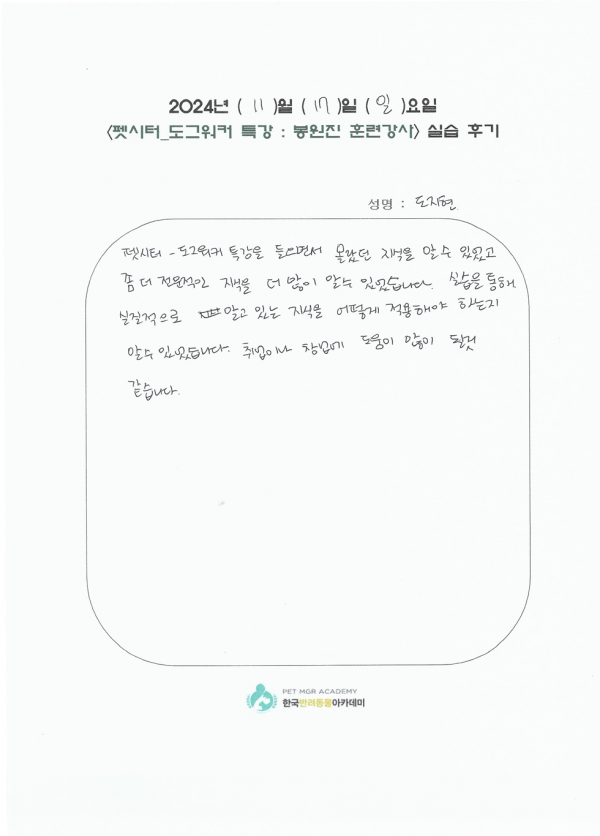 2024년 ( 11 )월 ( 17 )일 ( 일 )요일
<펫시터_도그워커 특강 : 봉원진 훈련강사> 실습 후기
성명 : 도지현
펫시터 - 도그워커 특강을 들으면서 몰랐던 지식을 알 수 있었고
좀 더 전문적인 지식을 더 많이 알수 있었습니다. 실습을 통해
실질적으로 알고 있는 지식을 어떻게 적용해야 하는지
알수 있었습니다. 취업이나 창업에 도움이 많이 될것
같습니다.
PET MGR ACADEMY
한국반려동물아카데미